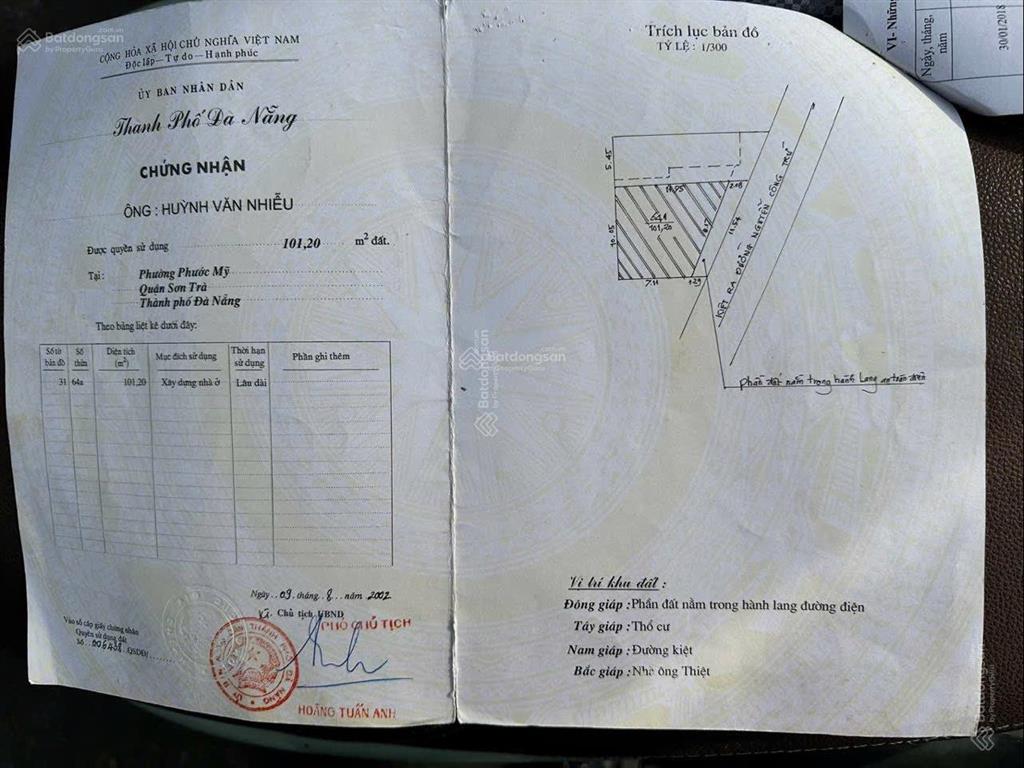 Batdongsan
by PropertyGuru
CỘNG HÒA XÃ HỘI CHỦ NGHĨA VIỆT NAM
Độc lập - Tự do - Hạnh phúc
ỦY BAN NHÂN DÂN
Thành Phố Đà Nẵng
CHỨNG NHẬN
ÔNG : HUỲNH VĂN NHIỄU
Được quyền sử dụng 101,20 m² đất.
Tại : Phường Phước Mỹ
Quận Sơn Trà
Thành phố Đà Nẵng
Theo bảng liệt kê dưới đây:
Số tờ bản đồ | Số thửa | Diện tích (m²) | Mục đích sử dụng | Thời hạn sử dụng | Phần ghi thêm
31 | 64a | 101,20 | Xây dựng nhà ở | Lâu dài
Ngày..09.tháng..8..năm 2002
Chủ tịch UBND
PHÓ CHỦ TỊCH
HOÀNG TUẤN ANH
Vào sổ cấp giấy chứng nhận
Quyền sử dụng đất
QSDĐ/
Trích lục bản đồ
TỶ LỆ : 1/300
5.45
10.05
101,20
2.08
11.54
7.11
1.29
KIỆT RA ĐƯỜNG NGUYỄN CÔNG TRỨ
phần đất nằm trong hành lang an toàn điện
Vị trí khu đất :
Đông giáp : Phần đất nằm trong hành lang đường điện
Tây giáp : Thổ cư
Nam giáp : Đường kiệt
Bắc giáp : Nhà ông Thiệt
VI- Những
Ngày, tháng, năm
30/01/2018
Batdongsan
by PropertyGuru
Batdongsan
by PropertyGuru